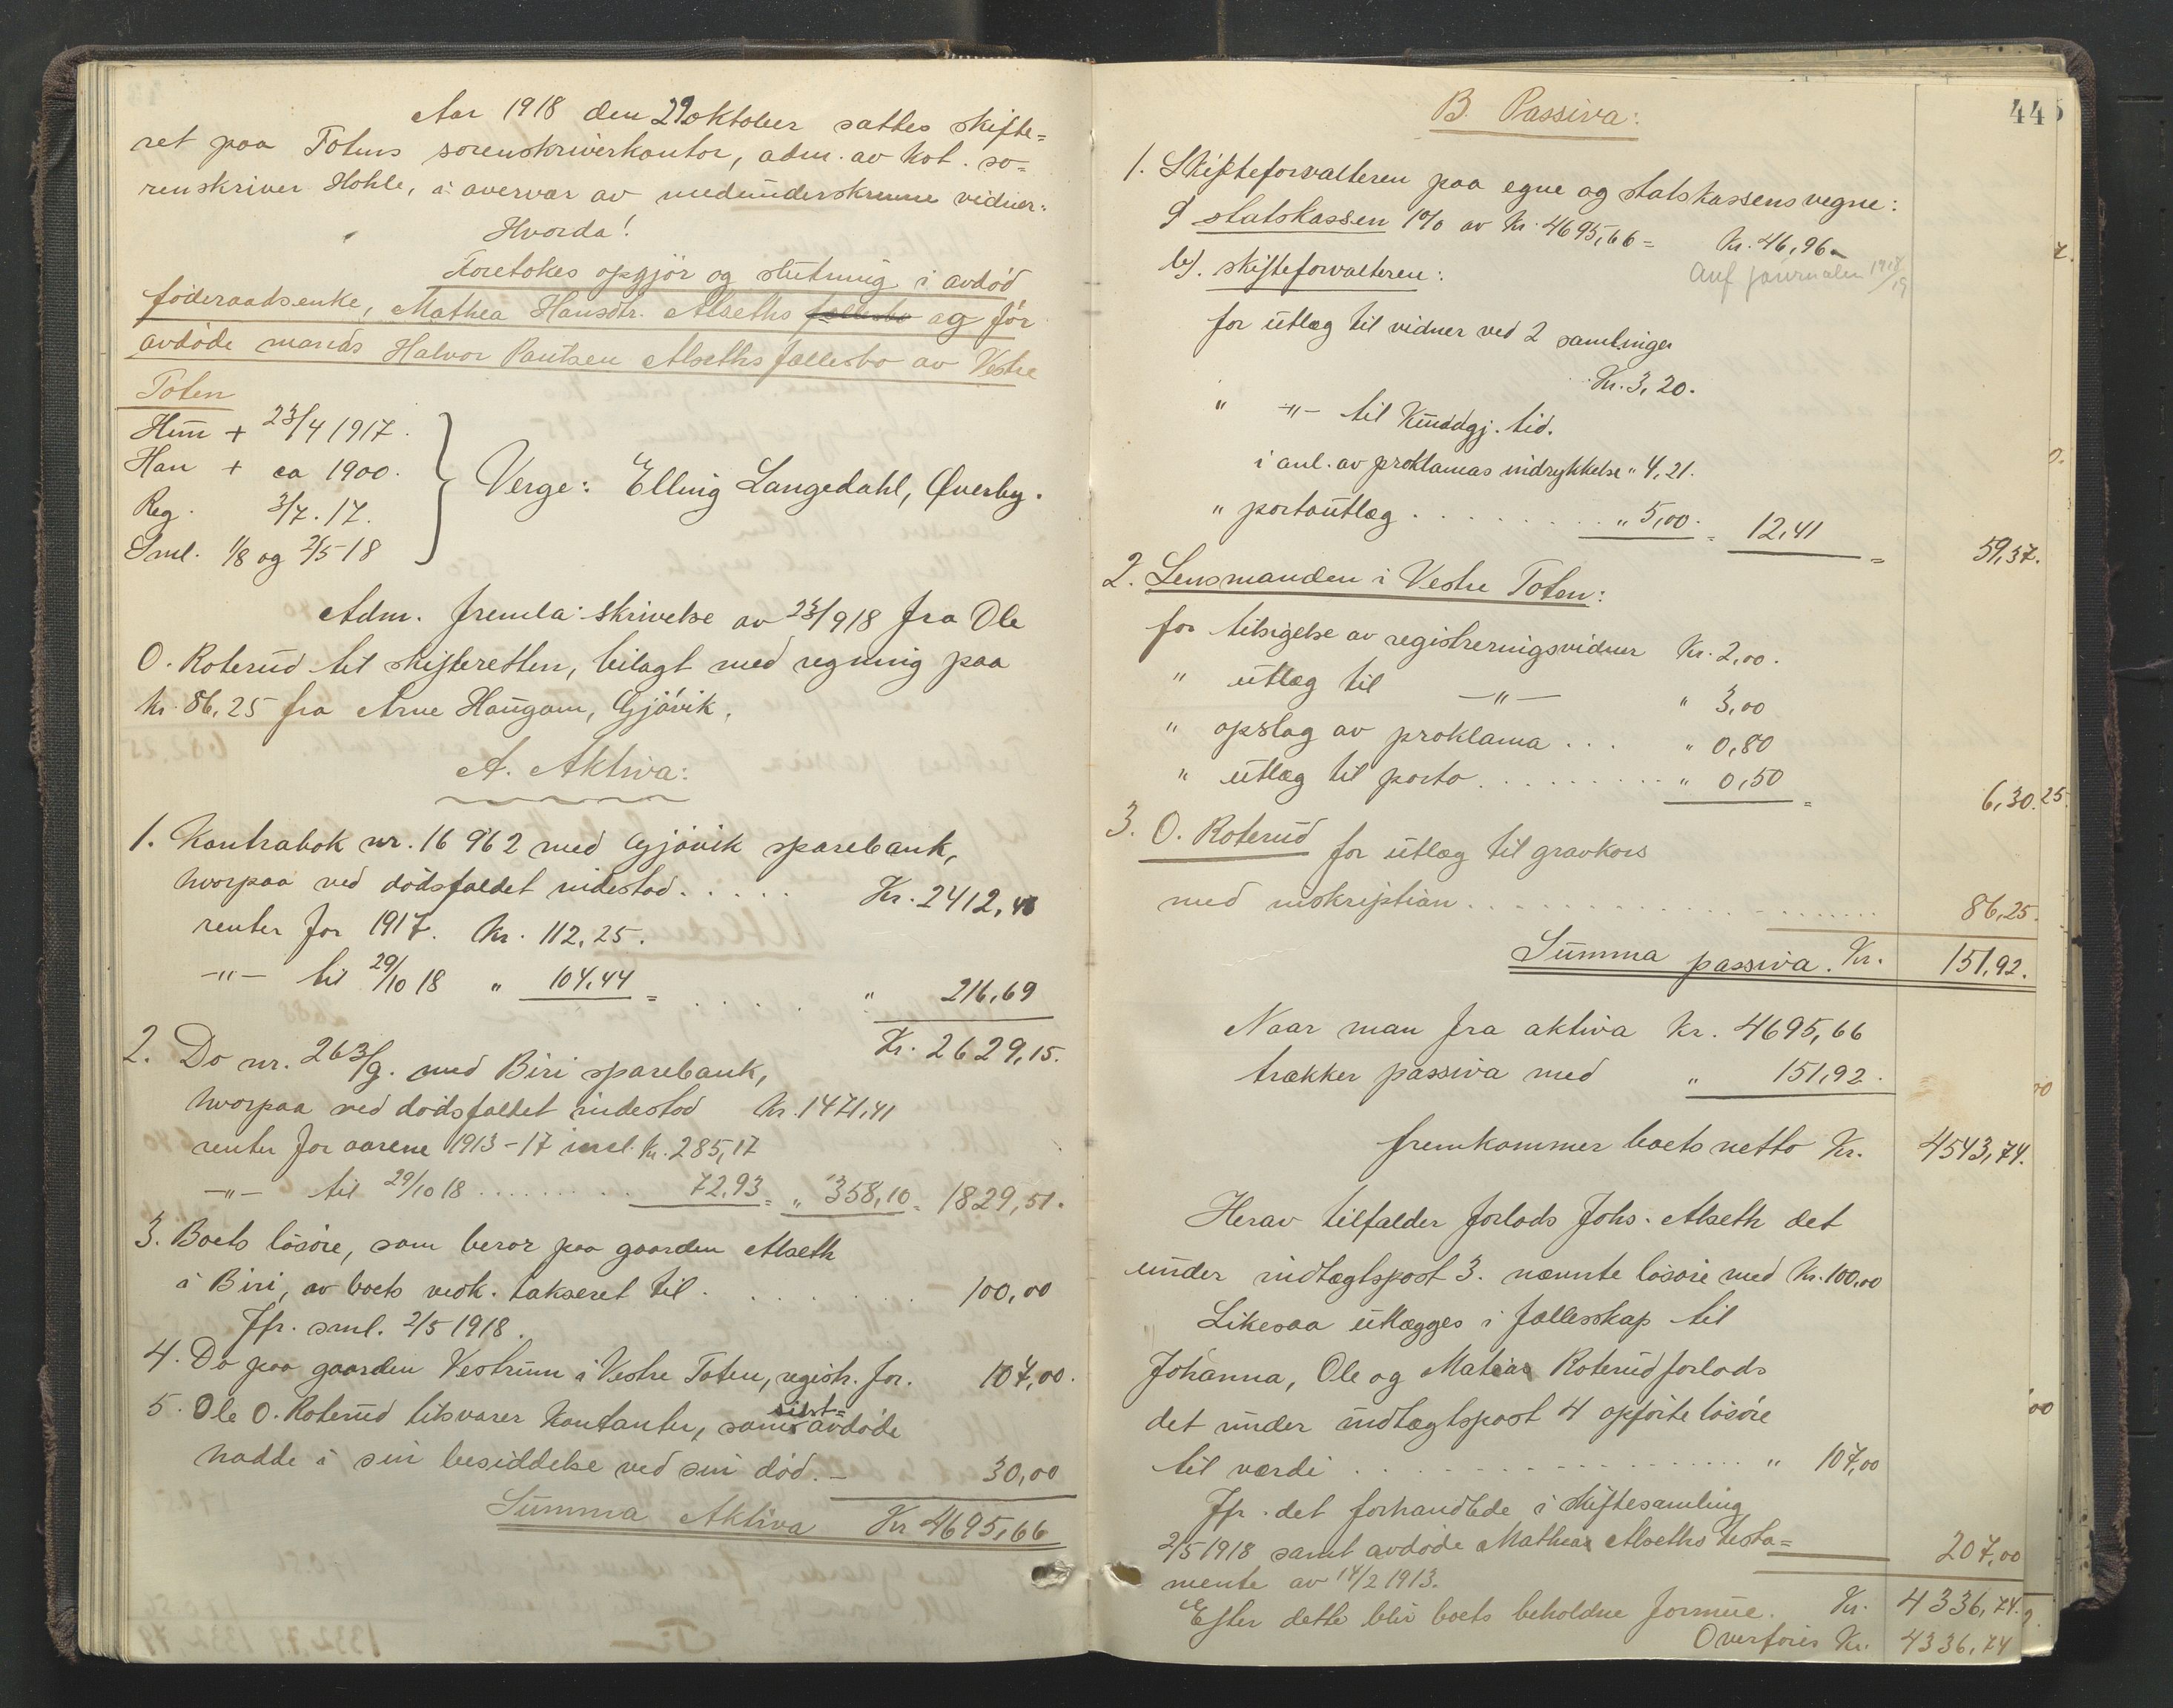 Aar 1918 den 29 oktober sattes skifte=
ret paa Totens sorenskriverkontor, adm. av kst. so=
renskriver Hohle, i overvær av medunderskrevne vidner:
Hvorda!
Foretokes opgjør og slutning i avdød
føderaadsenke, Mathea Hansdtr. Alseths fællesbo og før
avdøde mands Halvor Paulsen Alseths fællesbo av Vestre
Toten
Hun + 23/4 1917.
Han + ca 1900.
Reg. 3/7.17.
Sml. 1/8 og 2/5 18
Verge: Elling Langedahl, Øverby.
Adm. fremla: skrivelse av 23/9 18 fra Ole
O. Roterud til skifteretten, bilagt med regning paa
kr. 86,25 fra Arne Haugom, Gjøvik.
A. Aktiva:
1. Kontrabok nr. 16962 med Gjøvik sparebank,
hvorpaa ved dødsfaldet indestod . . . . . Kr. 2412,46
renter for 1917. Kr. 112,25.
-"- til 29/10 18 " 104,44 = . . . . " 216,69
Kr. 2629,15.
2. Do nr. 263/g. med Biri sparebank,
hvorpaa ved dødsfaldet indestod Kr. 1471,41
renter for aarene 1913-17 incl. Kr. 285,17
-"- til 29/10 18 . . . . . . . . 72,93 = " 358,10 = 1829,51.
3. Boets løsøre, som beror paa gaarden Alseth
i Biri, av boets vedk. takseret til . . . . . . . . 100,00
Jfr. sml. 2/5 1918.
4. Do paa gaarden Vestrum i Vestre Toten, registr. for. 107,00.
5. Ole O. Roterud tilsvarer Kontanter, som sist=avdøde
hadde i sin besiddelse ved sin død. - 30,00
Summa Aktiva Kr 4695,66
445
B. Passiva:
1. Skifteforvalteren paa egne og statskassens vegne:
a) statskassen 1% av Kr. 4695,66 = Kr. 46,96
b). skifteforvalteren:
Anf journalen 1917/19
for utlæg til vidner ved 2 samlinger
Kr. 3,20.
" -"- til Kunddgj. tid.
i anl. av proklamas indrykkelse " 4,21.
" portoutlæg . . . . . . . . . " 5,00. = 12,41 = 59,37.
2. Lensmanden i Vestre Toten:
for tilsigelse av registreringsvidner Kr. 2,00.
" utlæg til -"- " 3,00
" opslag av proklama . . . " 0,80
" utlæg til porto . . . . . . . . . " 0,50 = 6,30.
3. O. Roterud for utlæg til gravkors
med inskription . . . . . . . . . . . . . . 86,25.
Summa passiva. Kr. 151,92.
Naar man fra aktiva Kr. 4695,66
trækker passiva med " 151,92.
fremkommer boets netto Kr. 4543,74.
Herav tilfalder forlods Johs. Alseth det
under indtægtspost 3. nævnte løsøre med Kr. 100,00
Likesaa utlægges i fællesskap til
Johanna, Ole og Matias Roterud forlods
det under indtægtspost 4 opførte løsøre
til værdi . . . . . . . . . . . . . . . . " 107,00
Jfr. det forhandlede i skiftesamling
2/5 1918 samt avdøde Matheas Alseths testa= 207,00
mente av 14/2 1913.
Efter dette blir boets beholdne formue. Kr. 4336,74.
Overføres Kr. 4336,74